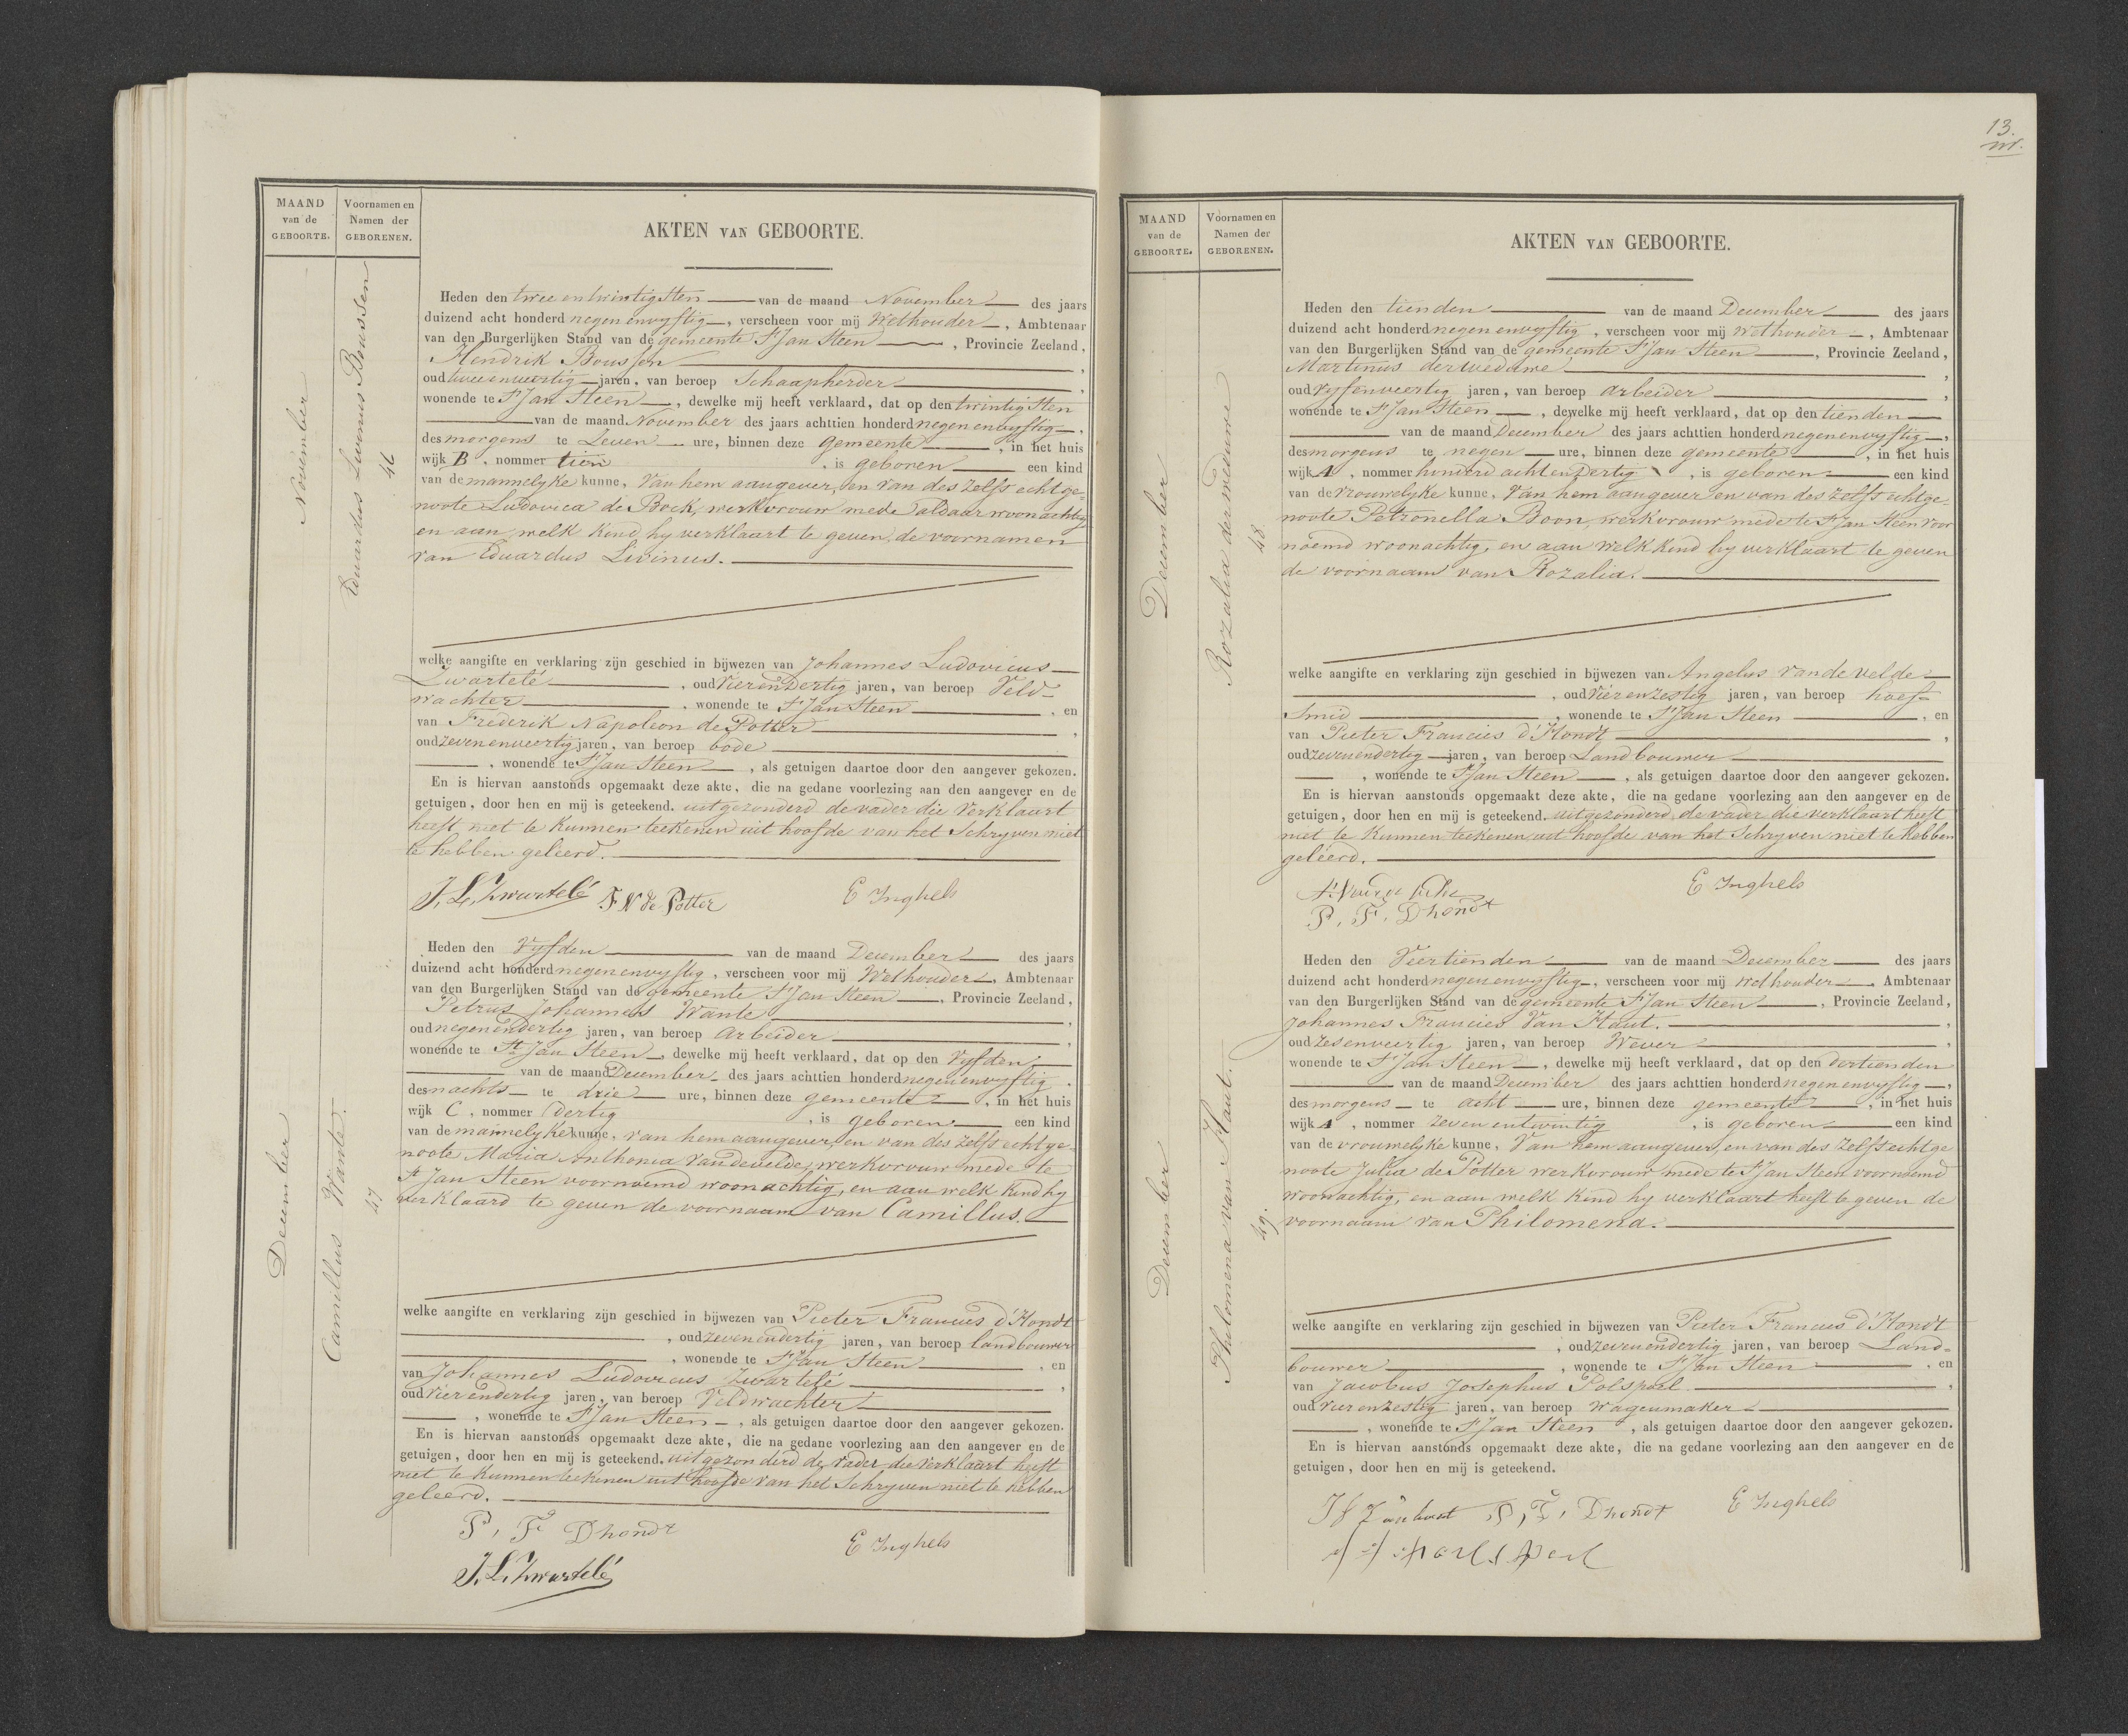 MAAND
van de
GEBOORTE.
Voornamen en
Namen der
GEBORENEN.
AKTEN VAN GEBOORTE.
November
Eduardus Livinus Boussen
46
Heden den twee en twintigsten van de maand November des jaars
duizend acht honderd negen envyftig, verscheen voor mij Wethouder, Ambtenaar
van den Burgerlijken Stand van de gemeente St Jan Steen, Provincie Zeeland,
Hendrik Boussen,
oud twee enveertig jaren, van beroep Schaapherder,
wonende te St Jan Steen, dewelke mij heeft verklaard, dat op den twintigsten
van de maand November des jaars achttien honderd negen envyftig,
des morgens te Zeven ure, binnen deze gemeente, in het huis
wijk B, nommer tien, is geboren een kind
van de mannelyke kunne, Van hem aangever, en van des zelfs echtge=
noote Ludovica de Bock, werkvrouw mede aldaar woonachtig
en aan welk kind hy verklaart te geven de voornamen
van Eduardus Livinus.
welke aangifte en verklaring zijn geschied in bijwezen van Johannes Ludovicus
Zwartelé, oud Vierendertig jaren, van beroep Veld=
wachter, wonende te St Jan Steen, en
van Frederik Napoleon de Potter,
oud zevenenveertig jaren, van beroep bode
, wonende te St Jan Steen, als getuigen daartoe door den aangever gekozen.
En is hiervan aanstonds opgemaakt deze akte, die na gedane voorlezing aan den aangever en de
getuigen, door hen en mij is geteekend. uitgezonderd de vader die Verklaart
heeft niet te Kunnen teekenen uit hoofde van het Schryven niet
te hebben geleerd.
J. L. Zwartelé F N de Potter E Inghels
December
Camillus Wante.
47
Heden den Vyfden van de maand December des jaars
duizend acht honderd negenenvyftig, verscheen voor mij Wethouder, Ambtenaar
van den Burgerlijken Stand van de gemeente St Jan Steen, Provincie Zeeland,
Petrus Johannes Wante,
oud negenendertig jaren, van beroep Arbeider,
wonende te St Jan Steen, dewelke mij heeft verklaard, dat op den Vyfden
van de maand December des jaars achttien honderd negenenvyftig,
des nachts te drie ure, binnen deze gemeente, in het huis
wijk C, nommer Dertig, is geboren een kind
van de mannelyke kunne, van hem aangever, en van des zelfs echtge
noote Maria Anthonia Vandevelde, werkvrouw mede te
St Jan Steen voornoemd woonachtig, en aan welk kind hy
verklaard te geven de voornaam van Camillus.
welke aangifte en verklaring zijn geschied in bijwezen van Pieter Francies d'Hondt
, oud zevenendertig jaren, van beroep landbouwer
, wonende te St Jan Steen, en
van Johannes Ludovicus Zwartelé,
oud vierendertig jaren, van beroep Veldwachter
, wonende te St Jan Steen, als getuigen daartoe door den aangever gekozen.
En is hiervan aanstonds opgemaakt deze akte, die na gedane voorlezing aan den aangever en de
getuigen, door hen en mij is geteekend. uitgezonderd de vader die verklaart heeft
niet te kunnen teekenen uit hoofde van het Schryven niet te hebben
geleerd.
P, F Dhondt E Inghels
J. L. Zwartelé
13.
MAAND
van de
GEBOORTE.
Voornamen en
Namen der
GEBORENEN.
AKTEN VAN GEBOORTE.
December
Rozalia derweduwe
48
Heden den tienden van de maand December des jaars
duizend acht honderd negen envyftig, verscheen voor mij Wethouder, Ambtenaar
van den Burgerlijken Stand van de gemeente St Jan Steen, Provincie Zeeland,
Martinus derweduwe,
oud Vyfenveertig jaren, van beroep Arbeider,
wonende te St Jan Steen, dewelke mij heeft verklaard, dat op den tienden
van de maand December des jaars achttien honderd negenenvyftig,
des morgens te negen ure, binnen deze gemeente, in het huis
wijk A, nommer honderd acht en Dertig, is geboren een kind
van de Vrouwelyke kunne, Van hem aangever en van des zelfs echtge
noote Petronella Boon, werkvrouw mede te St Jan Steen voor
noemd woonachtig, en aan welk kind hy verklaart te geven
de voornaam van Rozalia.
welke aangifte en verklaring zijn geschied in bijwezen van Angelus Vandevelde
, oud Vierenzestig jaren, van beroep hoef=
Smid, wonende te St Jan Steen, en
van Pieter Francies d'Hondt,
oud zevenendertig jaren, van beroep Landbouwer
, wonende te St Jan Steen, als getuigen daartoe door den aangever gekozen.
En is hiervan aanstonds opgemaakt deze akte, die na gedane voorlezing aan den aangever en de
getuigen, door hen en mij is geteekend. uitgezonderd de vader die verklaart heeft
niet te kunnen teekenen uit hoofde van het Schryven niet te hebben
geleerd.
E Inghels
P, F, Dhondt
December
Philomena van Haut.
49.
Heden den Veertienden van de maand December des jaars
duizend acht honderd negen envyftig, verscheen voor mij Wethouder, Ambtenaar
van den Burgerlijken Stand van de gemeente St Jan Steen, Provincie Zeeland,
Johannes Francies Van Haut.,
oud Zesenveertig jaren, van beroep Wever,
wonende te St Jan Steen, dewelke mij heeft verklaard, dat op den dertienden
van de maand December des jaars achttien honderd negenenvyftig,
des morgens te acht ure, binnen deze gemeente, in het huis
wijk A, nommer zeven entwintig, is geboren een kind
van de vrouwelyke kunne, Van hem aangever, en van des Zelfs echtge
noote Julia de Potter werkvrouw mede te St Jan Steen voornoemd
woonachtig, en aan welk kind hy verklaart heeft te geven de
voornaam van Philomena.
welke aangifte en verklaring zijn geschied in bijwezen van Pieter Francies d'Hondt
, oud zevenendertig jaren, van beroep Land=
bouwer, wonende te St Jan Steen, en
van Jacobus Josephus Polspoel,
oud vierenzestig jaren, van beroep Wagenmaker
, wonende te St Jan Steen, als getuigen daartoe door den aangever gekozen.
En is hiervan aanstonds opgemaakt deze akte, die na gedane voorlezing aan den aangever en de
getuigen, door hen en mij is geteekend.
P, F, Dhondt E Inghels